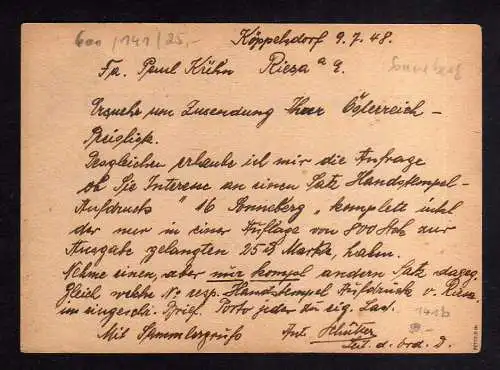 600/141/25,-
Köppelsdorf 9.7.48.
Fa. Paul Kühn Riesa a E.
Sonneberg
Ersuche um Zusendung Ihrer Österreich-
Preisliste.
Desgleichen erlaube ich mir die Anfrage
ob Sie Interesse an einen Satz Handstempel-
Aufdruck "16 Sonneberg" komplett inkl
der nur in einer Auflage von 800 Stck zur
Ausgabe gelangten 25 Marke, haben.
Nehme einen, aber nur kompl andern Satz dageg.
Gleich welche No resp. Handstempel Aufdrücke v. Riesa
um eingeschr. Brief. Porto jeder zu sig. Las.
Mit Sammlergruß Ant. Schütter
141b